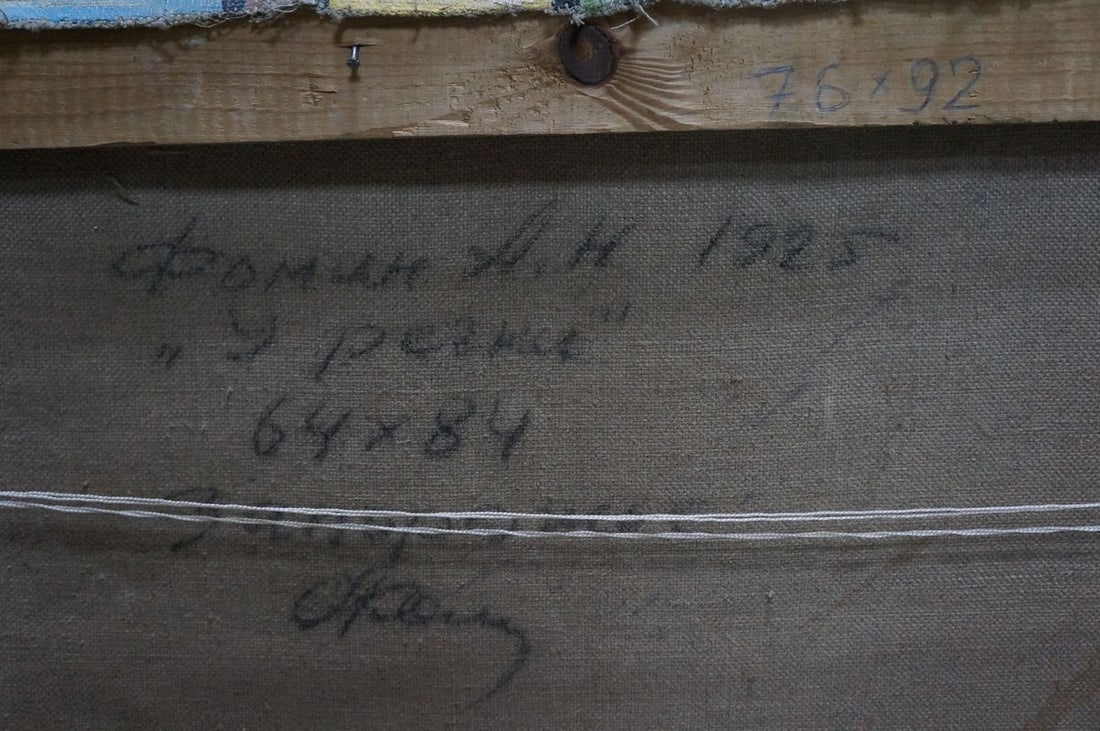 76×92
Фомин А.Н 1925
„У речки"
64×84